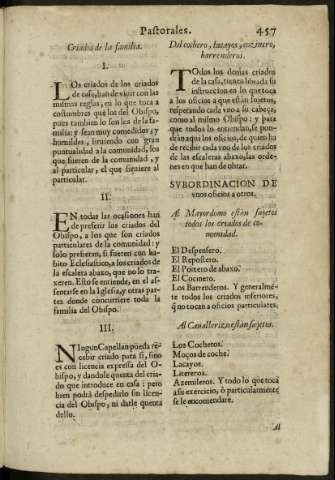 Pastorales. 457
Criados de la familia.
I.
LOs criados de los criados
de casa, han de viuir con las
mismas reglas, en lo que toca a
costumbres que los del Obispo,
pues tambien lo son los de la fa-
milia: y sean muy comedidos, y
humildes, siruiendo con gran
puntualidad a la comunidad, los
que fueren de la comunidad, y
al particular, el que siruiere al
particular.
II.
EN todas las ocasiones han
de preferir los criados del
Obispo, a los que son criados
particulares de la comunidad: y
solo prefieran, si fueren con ha-
bito Eclesiastico, a los criados de
la escalera abaxo, que no lo tra-
xeren. Esto se entiende, en el as-
sentarse en la Iglesia, y otras par-
tes donde concurriere toda la
familia del Obispo.
III.
NIngun Capellan pueda re-
cebir criado para si, sino
es con licencia expressa del O-
bispo, y dandole quenta del cria-
do que introduce en casa: pero
bien podrà despedirlo sin licen-
cia del Obispo, ni darle quenta
dello.
Del cochero, lacayos, cozinero,
barrenderos.
TOdos los demas criados
de la casa, tienen librada su
instruccion en lo que toca
a los oficios a que están sujetos,
respetando cada vno a su cabeça
como al mismo Obispo: y para
que todos lo entiendan, se pon-
drán aqui los oficios, de quien ha
de recibir cada vno de los criados
de las escaleras abaxo, las orde-
nes en que han de obrar.
SVBORDINACION DE
vnos oficios a otros.
Al Mayordomo están sujetos
todos los criados de co-
munidad.
El Despensero.
El Repostero.
El Portero de abaxo.
El Cocinero.
Los Barrenderos. Y generalmē-
te todos los criados inferiores,
q̄ no tocan a oficios particulares.
Al Cauallerizo están sujetos.
Los Cocheros.
Moços de coche.
Lacayos.
Litereros.
Azemileros. Y todo lo que toca
a su exercicio, ò particularmente
se le encomendare.
Al